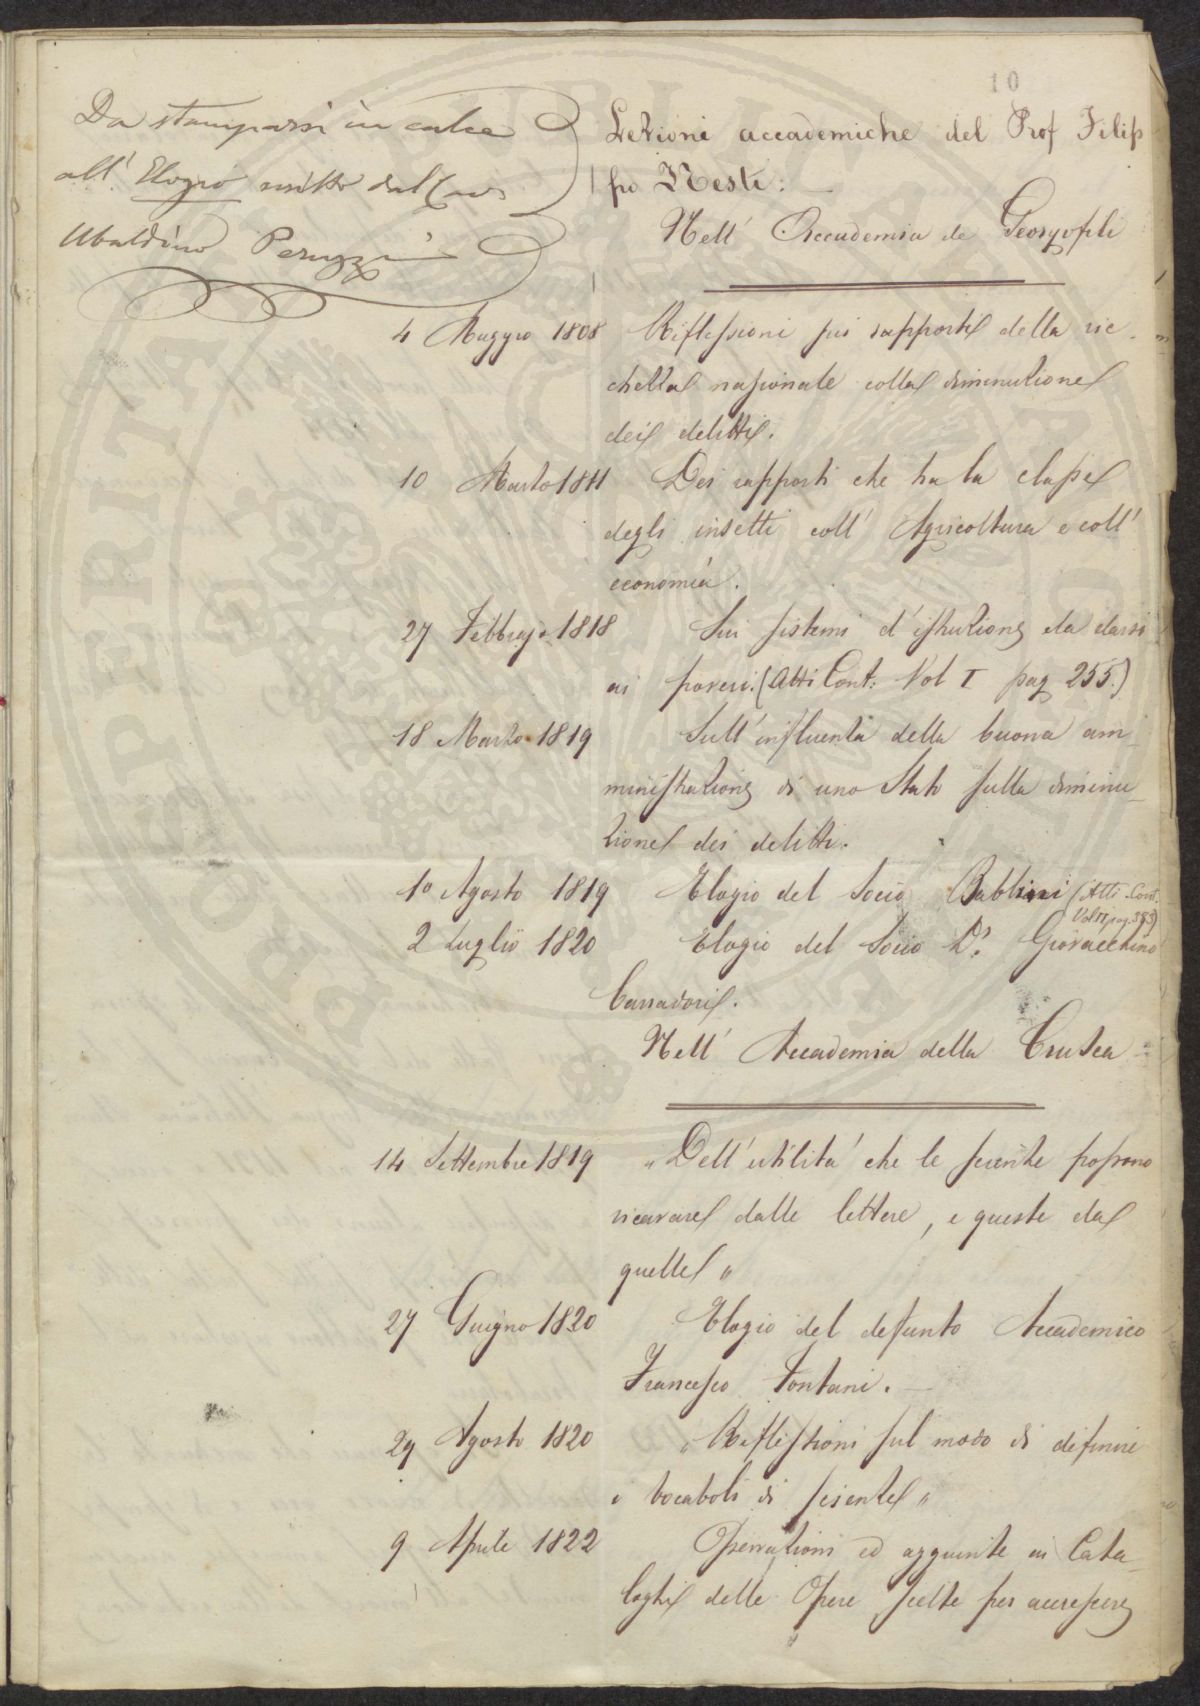 10
Da stamparsi in calce
all' Elogio scritto dal Cav.
Ubaldino Peruzzi
Lezioni accademiche del Prof Filip
po Nesti:
Nell' Accademia de Georgofili
4 Maggio 1808 Riflessioni sui rapporti della ric
chezza nazionale colla diminuzione
dei delitti.
10 Marzo 1811 Dei rapporti che ha la classe
degli insetti coll' Agricoltura e coll'
economia.
27 Febbrajo 1818 Sui sistemi d'istruzione da darsi
ai poveri. (Atti Cont: Vol I pag 255.)
18 Marzo 1819 Sull'influenza della buona am_
ministrazione di uno Stato sulla diminu_
zione dei delitti.
1º Agosto 1819 Elogio del Socio (Atti. Cont.
Vol II pag. 383)
2 Luglio 1820 Elogio del Socio Dr. Giovacchino
Carradori.
Nell' Accademia della Crusca
14 Settembre 1819 "Dell'utilita' che le scienze possono
ricavare dalle lettere, e queste da
quelle"
27 Giugno 1820 Elogio del defunto Accademico
Francesco Fontani.
29 Agosto 1820 "Riflessioni sul modo di definire
i vocaboli di scienze"
9 Aprile 1822 Osservazioni ed aggiunte ai Cata_
loghi delle Opere scelte per accrescere